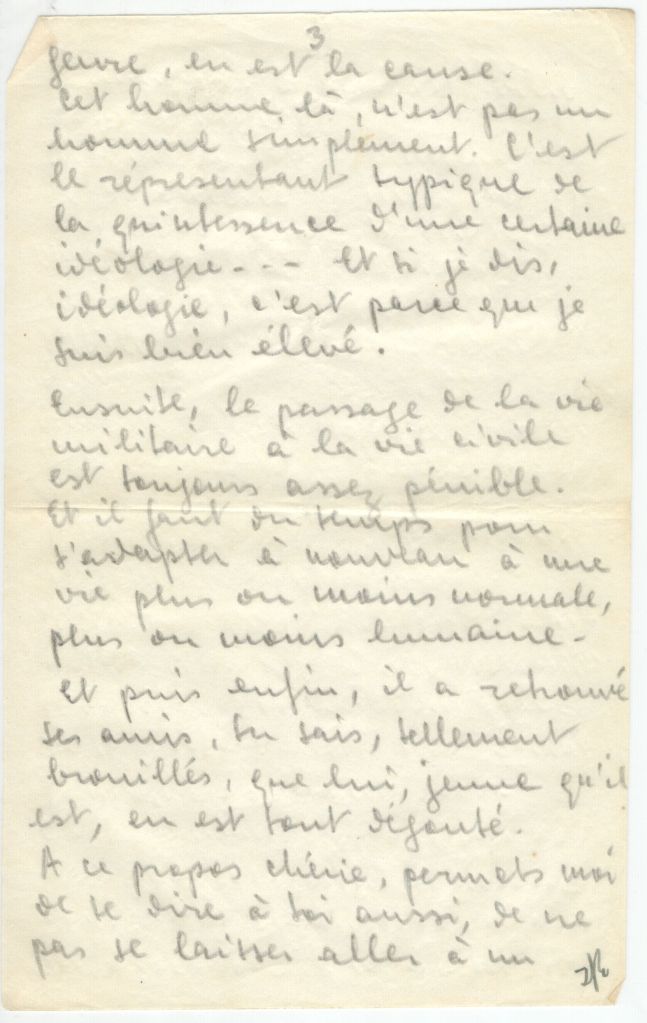 3
genre, en est la cause.
Cet homme là, n'est pas un
homme simplement. C'est
le réprésentant typique de
la quintessence d'une certaine
idéologie--- Et si je dis,
idéologie, c'est parce que je
suis bien élevé.
Ensuite, le passage de la vie
militaire à la vie civile
est toujours assez pénible.
Et il faut du temps pour
s'adapter à nouveau à une
vie plus ou moins normale,
plus ou moins humaine-
Et puis enfin, il a retrouvé
ses amis, tu sais, tellement
brouillés, que lui, jeune qu'il
est, en est tout dégouté.
A ce propos chérie, permets moi
de te dire à toi aussi, de ne
pas te laisser aller à un